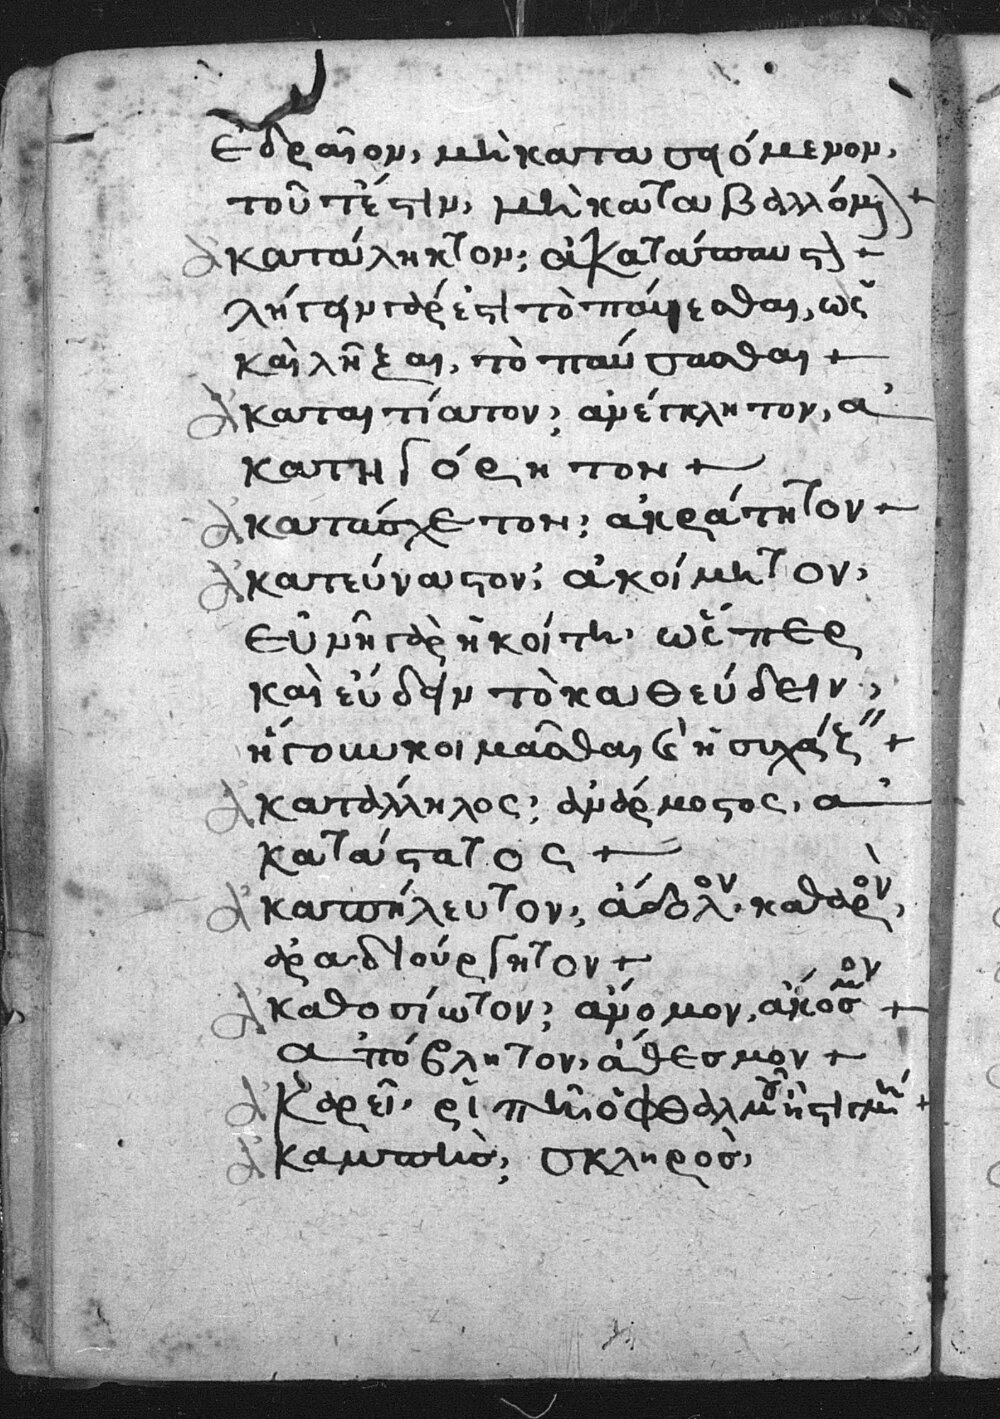 ἑδραῖον, μὴ κατασειόμενον,
τουτέστιν, μὴ καταβαλλόμενον +
Ἀκατάληκτον; ἀκατάπαυστον +
λήγειν γάρ ἐστι τὸ παύεσθαι, ὡς
καὶ λῆξαι, τὸ παύσασθαι +
Ἀκαταιτίατον; ἀνέγκλητον, ἀ
κατηγόρητον +
Ἀκατάσχετον; ἀκράτητον +
Ἀκατεύναστον; ἀκοίμητον,
εὐνὴ γὰρ ἡ κοίτη, ὥσπερ
καὶ εὕδειν τὸ καθεύδειν,
ἤγουν κοιμᾶσθαι ἢ ἡσυχάζειν +
Ἀκατάλληλος; ἀνάρμοστος, ἀ
κατάστατος +
Ἀκαπήλευτον; ἄδολον, καθαρὸν,
ἀραδιούργητον +
Ἀκαθοσίωτον; ἄνομον,
ἀπόβλητον, ἄθεσμον +
Ἀκαρεῖ, ῥιπῇ ὀφθαλμοῦ ἢ στιγμῇ +
Ἀκαμπὴς; σκληρὸς,